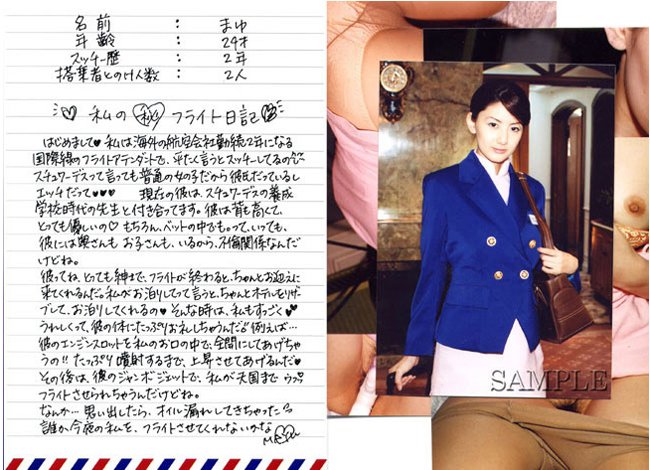 名前 : まゆ
年齢 : 24才
スッチー歴 : 2年
搭乗者とのH人数 : 2人
私の㊙フライト日記
はじめまして♥私は海外の航空会社勤続2年になる
国際線のフライトアテンダントで、平たく言うとスッチーしてるの
スチュワーデスって言っても普通の女の子だから彼氏だっているし
エッチだって♥♥♥ 現在の彼は、スチュワーデスの養成
学校時代の先生と付き合ってます。彼は背も高くて、
とっても優しいの♡もちろん、ベットの中でも。って、いっても、
彼には奥さんも お子さんも、いるから、不倫関係なんだ
けどね。
彼ってね、とっても紳士で、フライトが終わると、ちゃんとお迎えに
来てくれるんだ。私がお泊りしてって言うと、ちゃんとホテルもリザ
ーブして、お泊りしてくれるの♥そんな時は、私もすごく
うれしくって、彼の体にたっぷりお礼しちゃうんだ 例えば…
彼のエンジンスロットを私のお口の中で、全開にしてあげちゃ
うの!! たっぷり噴射するまで、上昇させてあげるんだ♥
その後は、彼のジャンボジェットで、私が天国まで
フライトさせられちゃうんだけどね。
なんか…思い出したら、オイル漏れしてきちゃった
誰か今夜の私を、フライトさせてくれないかな
SAMPLE